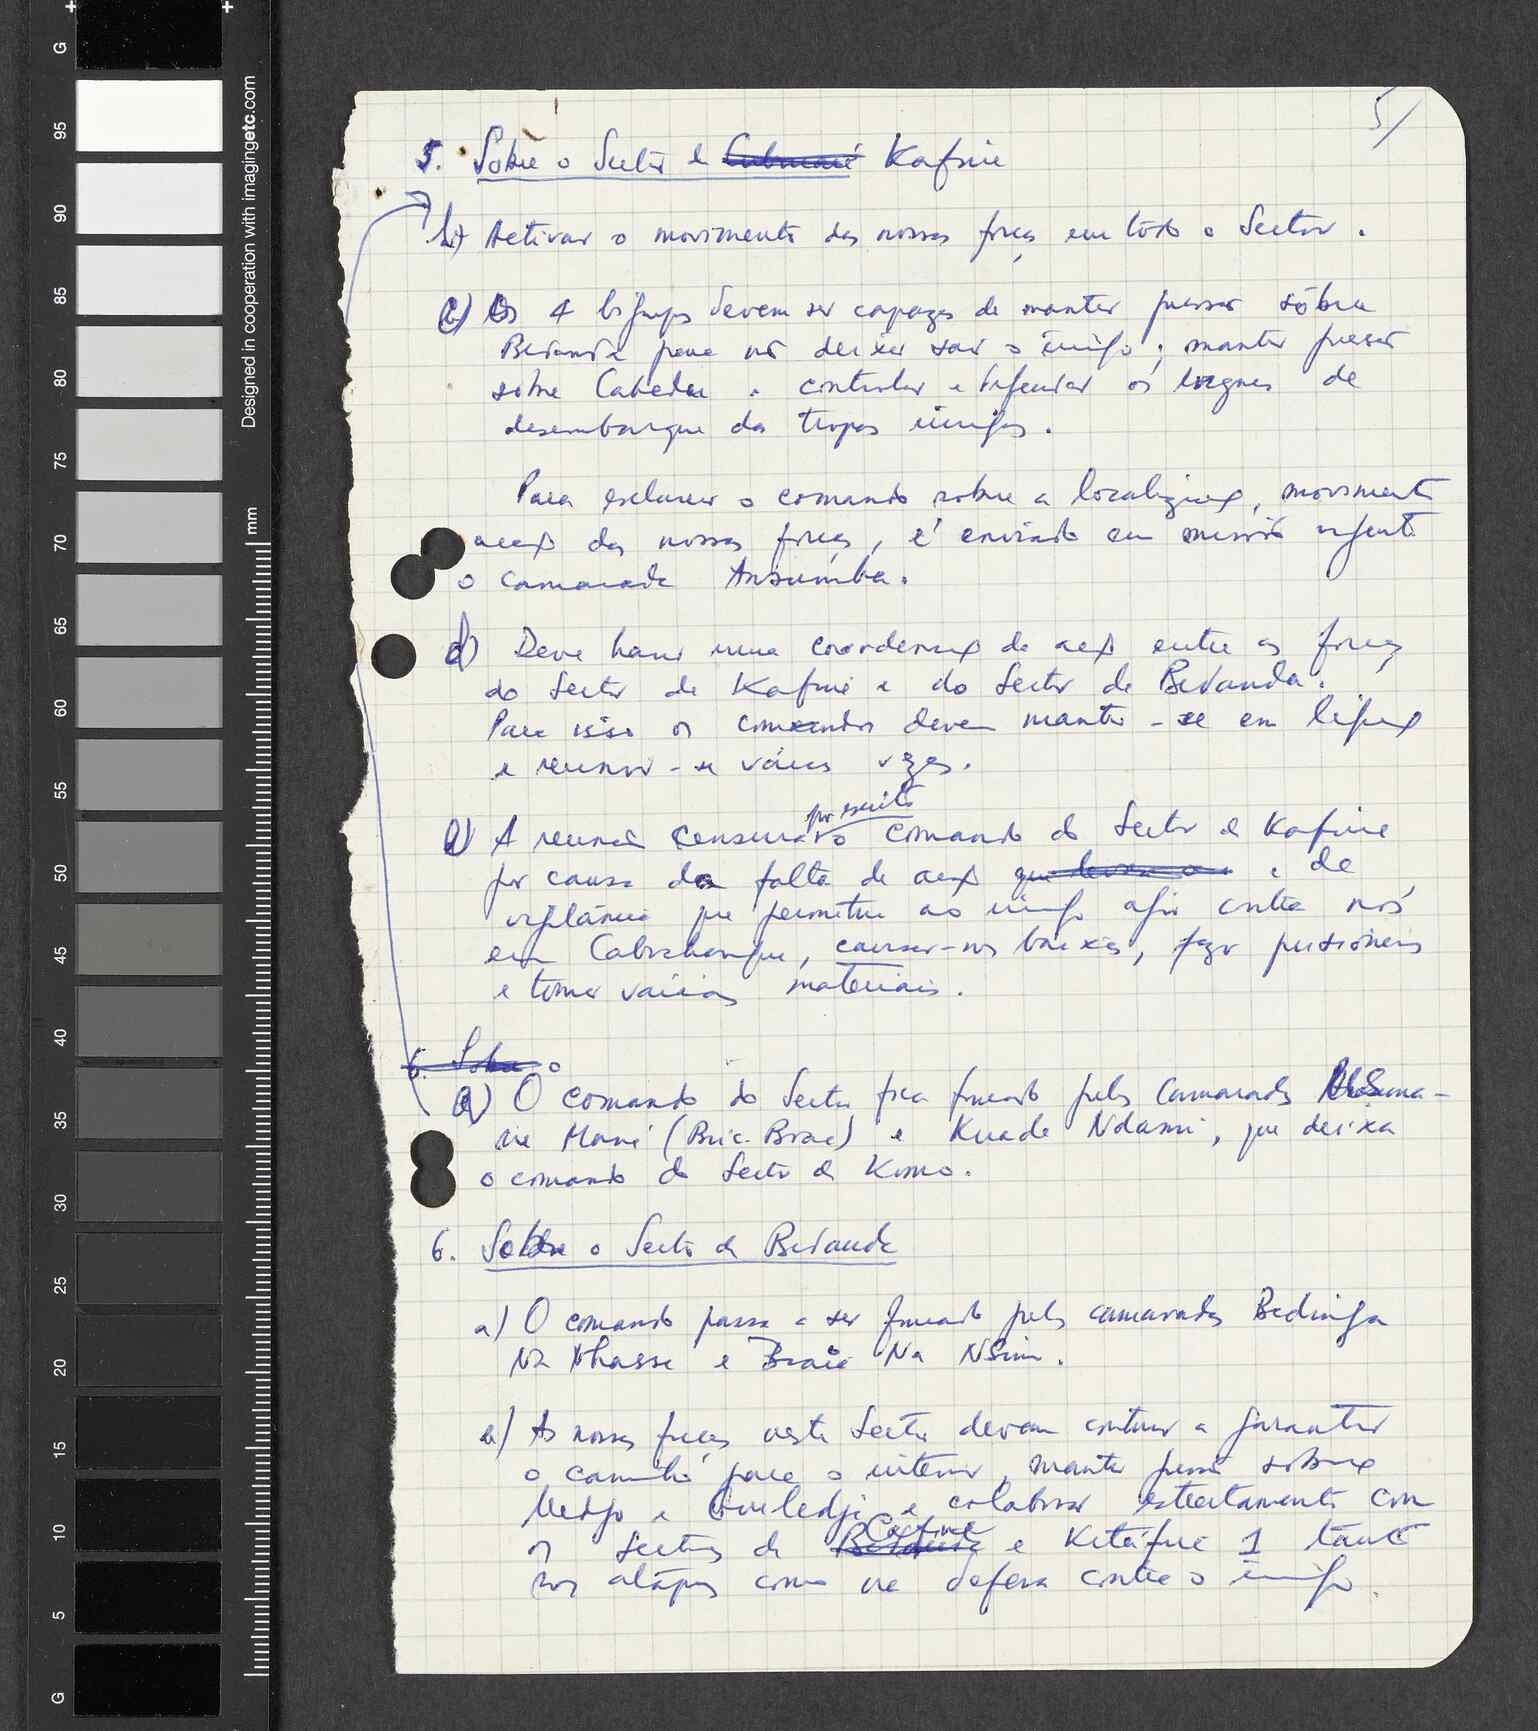 5/
5. Sobre o Sector de Kafine
b) Activar o movimento das nossas forças em todo o Sector.
c) Os 4 bigrupos devem ser capazes de manter pressão sôbre
Bedanda para não deixar sair o inimigo; manter pressão
sobre Cabedu e controlar e defender os lugares de
desembarque das tropas inimigas.
Para esclarecer o comando sobre a localização, movimento
acção das nossas forças, é enviado em missão urgente
o camarada Ansumba.
d) Deve haver uma coordenação de acção entre as forças
do Sector de Kafine e do Sector de Bedanda.
Para isso os comandos devem manter-se em ligação
e reunir-se várias vezes.
por escrito
e) A reunião censurará o comando do Sector de Kafine
por causa da falta de acção que e de
vigilância que permitiu ao inimigo agir contra nós
em Cabochanque, causar-nos baixas, fazer prisioneiros
e tomar vários materiais.
6. Sobre o
a) O comando do Sector fica formado pelos camaradas
ne Mané (Bric-Brac) e Kuade Ndami, que deixa
o comando do Sector de Komo.
6. Sobre o Sector de Bedanda
a) O comando passa a ser formado pelos camaradas Bedinga
Na Nhasse e Braie Na NSim.
b) As nossas forças neste Sector devem continuar a garantir
o caminho para o interior, manter pressão sobre
Medjo e Guiledje e colaborar estreitamente com
Cafine
os Sectores de e Kitáfine 1 tanto
nos ataques como na defesa contra o inimigo.